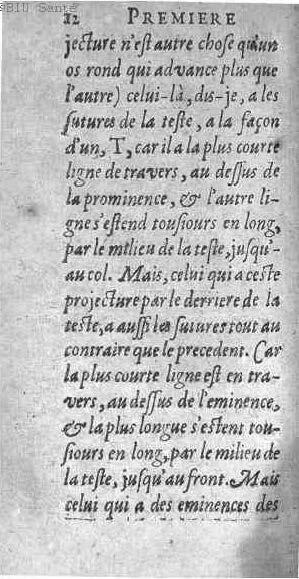 BIU Santé
12 PREMIERE
jecture n'est autre chose qu'un
os rond qui advance plus que
l'autre) celui-là, dis-je, a les
sutures de la teste, a la façon
d'un, T, car il a la plus courte
ligne de travers, au dessus de
la prominence, & l'autre li-
gne s'estend tousiours en long,
par le milieu de la teste, jusqu'-
au col. Mais, celui qui a ceste
projecture par le derriere de la
teste, a aussi les sutures tout au
contraire que le precedent. Car
la plus courte ligne est en tra-
vers, au dessus de l'eminence,
& la plus longue s'estent tou-
siours en long, par le milieu de
la teste, jusqu'au front. Mais
celui qui a des eminences des